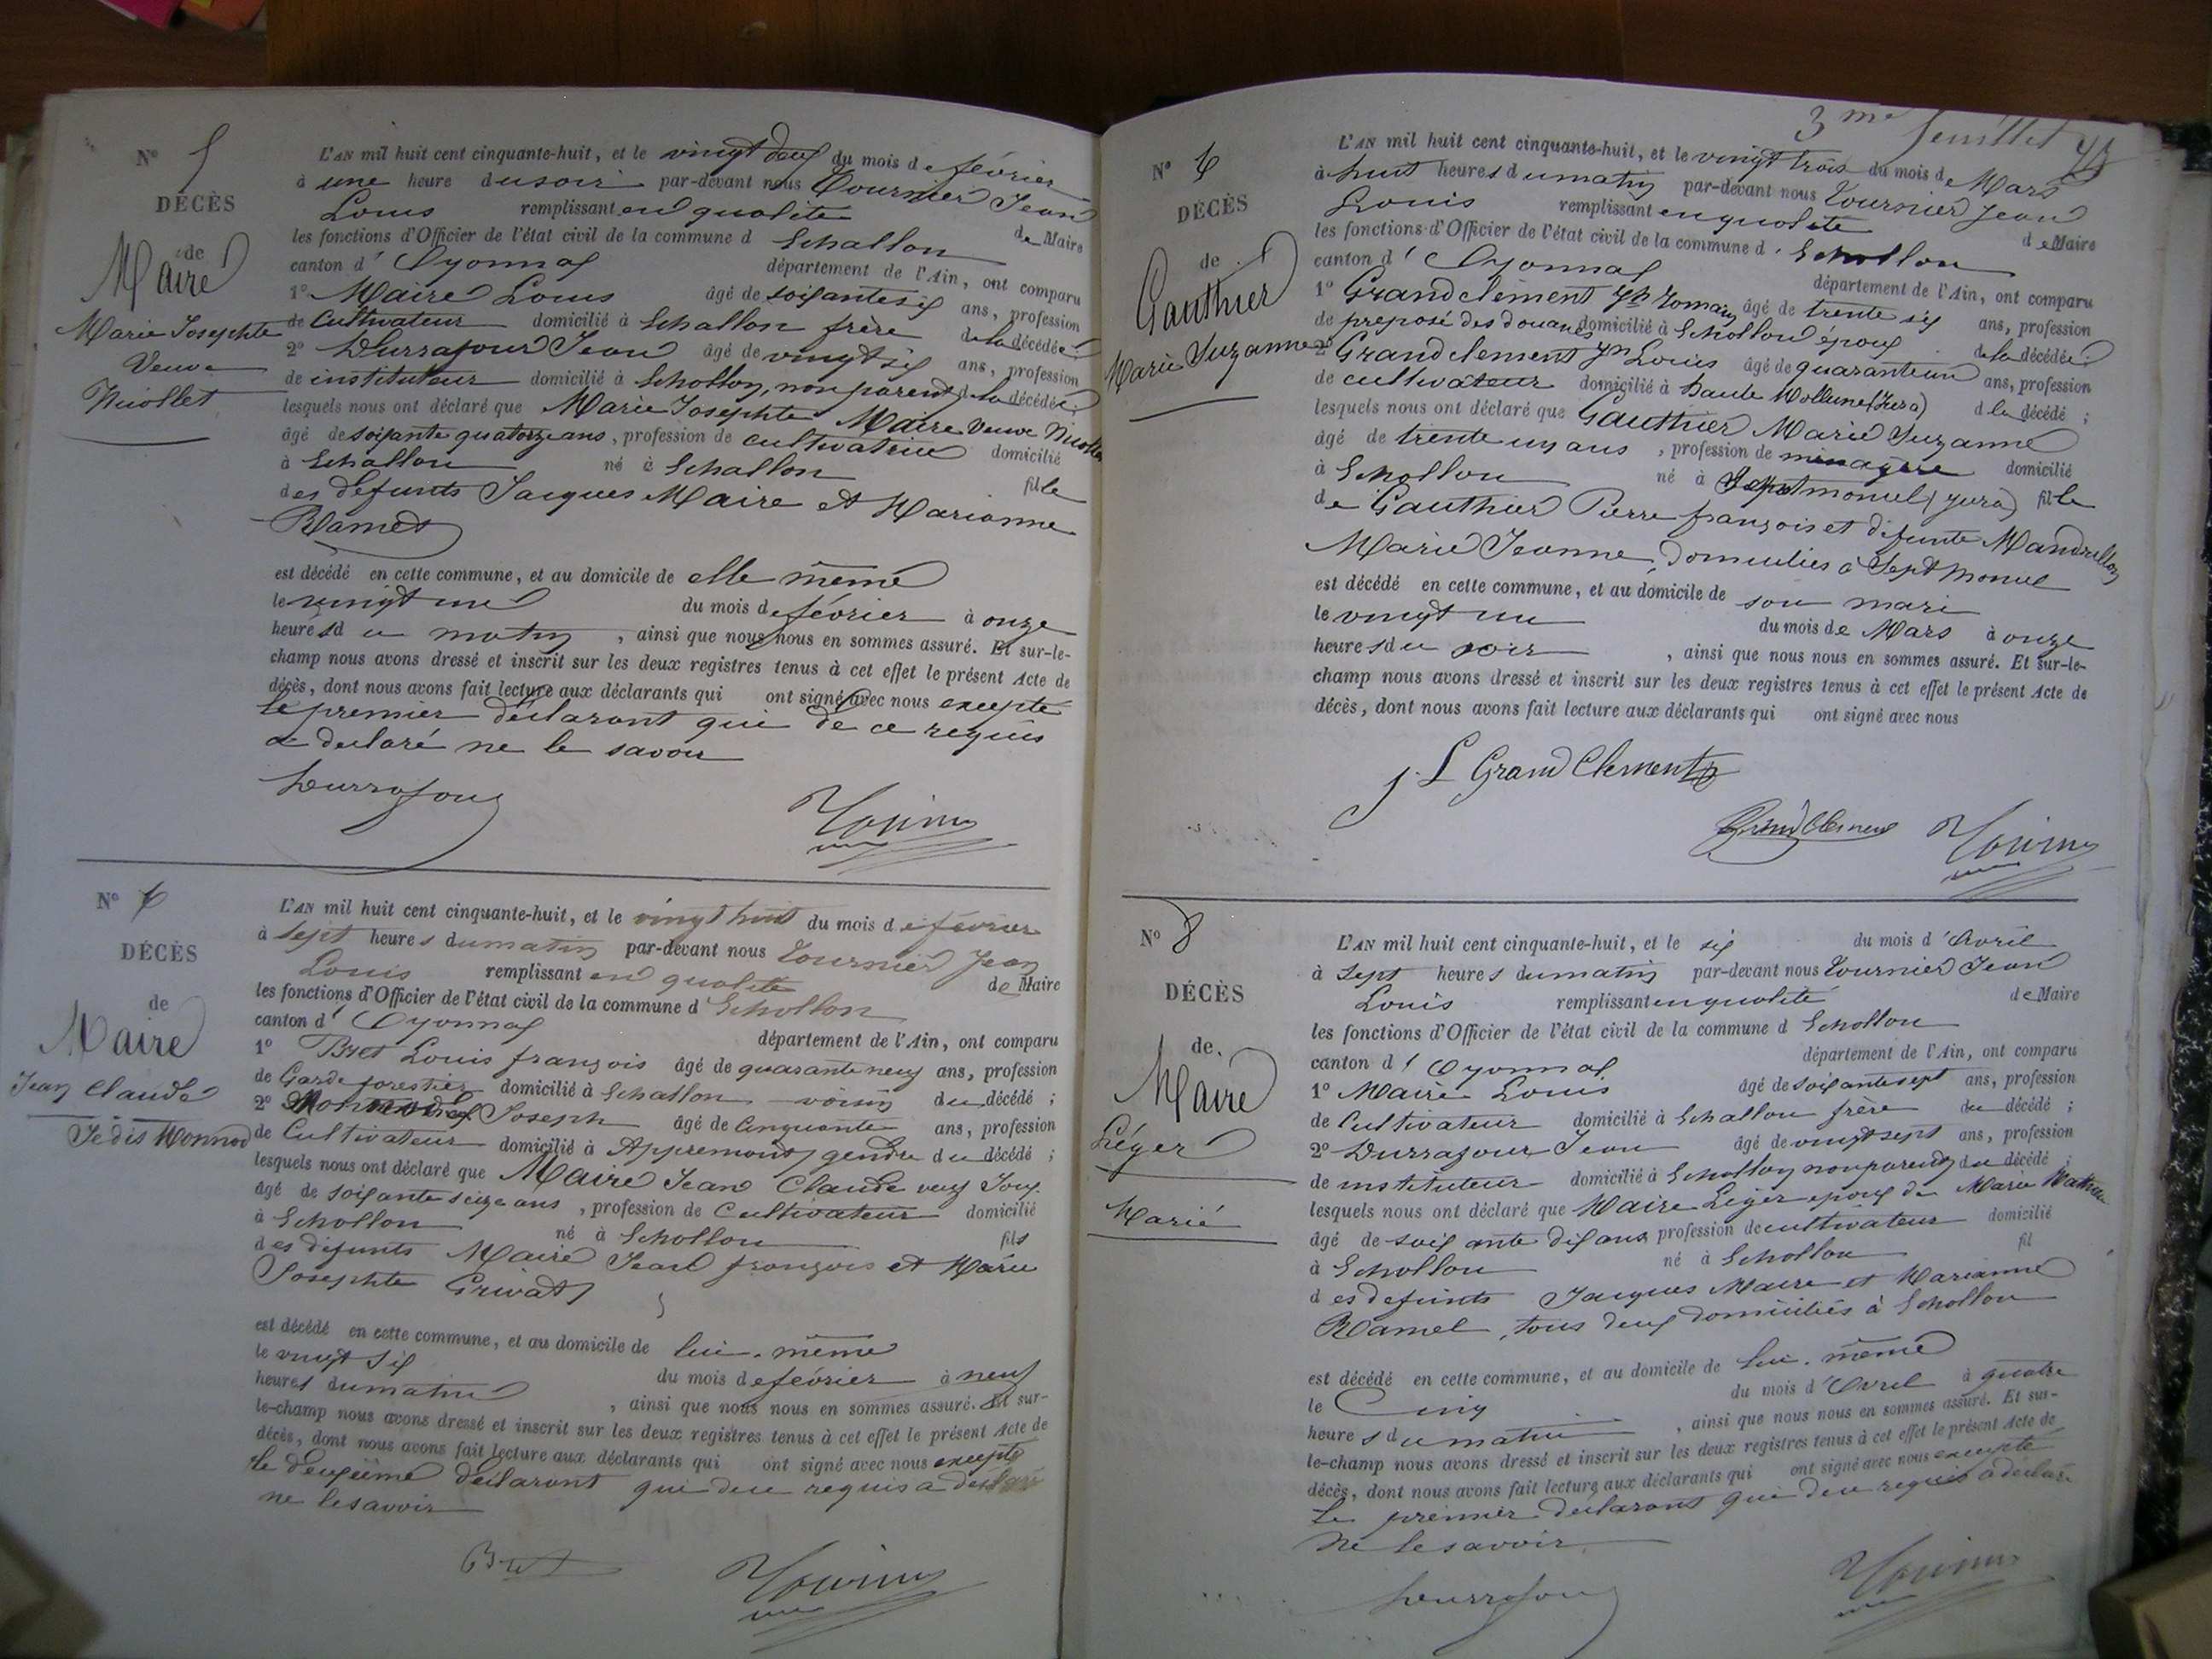 N° 5
DÉCÈS
de
Maire
Marie Josephte
Veuve
Nicollet
L'AN mil huit cent cinquante-huit, et le vingt deux du mois de février
à une heure du soir par-devant nous Tournier Jean
Louis remplissant en qualité de Maire
les fonctions d'Officier de l'état civil de la commune d Echallon
canton d' Oyonnax département de l'Ain, ont comparu
1° Maire Louis âgé de soixante six ans, profession
de Cultivateur domicilié à Echallon frère de la décédée;
2° Durrafour Jean âgé de vingt six ans, profession
de instituteur domicilié à Echallon, non parent de la décédée;
lesquels nous ont déclaré que Marie Josephte Maire Veuve Nicollet
âgé de soixante quatorze ans, profession de cultivatrice domicilié
à Echallon né à Echallon fille
des défunts Jacques Maire et Marianne
Ramel
est décédé en cette commune, et au domicile de elle même
le vingt un du mois de février à onze
heures du matin, ainsi que nous nous en sommes assuré. Et sur-le-
champ nous avons dressé et inscrit sur les deux registres tenus à cet effet le présent Acte de
décès, dont nous avons fait lecture aux déclarants qui ont signé avec nous excepté
le premier déclarant qui de ce requis
a déclaré ne le savoir
Durrafour
N° 6
DÉCÈS
de
Maire
Jean Claude
L'AN mil huit cent cinquante-huit, et le vingt huit du mois de février
à sept heures du matin par-devant nous Tournier Jean
Louis remplissant en qualité de Maire
les fonctions d'Officier de l'état civil de la commune d Echallon
canton d' Oyonnax département de l'Ain, ont comparu
1° Bret Louis françois âgé de quarante neuf ans, profession
de Garde forestier domicilié à Echallon voisin du décédé;
2° Joseph âgé de cinquante ans, profession
de Cultivateur domicilié à Apremont gendre du décédé;
lesquels nous ont déclaré que Maire Jean Claude
âgé de soixante seize ans, profession de Cultivateur domicilié
à Echallon né à Echallon fils
des défunts Maire Jean françois et Marie
Josephte Grivat
est décédé en cette commune, et au domicile de lui-même
le vingt six du mois de février à neuf
heures du matin, ainsi que nous nous en sommes assuré. Et sur-
le-champ nous avons dressé et inscrit sur les deux registres tenus à cet effet le présent Acte de
décès, dont nous avons fait lecture aux déclarants qui ont signé avec nous excepté
le deuxième déclarant que de ce requis a déclaré
ne le savoir
Bret
3me feuillet
N°
DÉCÈS
de
Gauthier
Marie Suzanne
L'AN mil huit cent cinquante-huit, et le vingt trois du mois de Mars
à huit heures du matin par-devant nous Tournier Jean
Louis remplissant en qualité de Maire
les fonctions d'Officier de l'état civil de la commune d' Echallon
canton d' Oyonnax département de l'Ain, ont comparu
1° Grandclément Jh Romain âgé de trente six ans, profession
de préposé des douanes domicilié à Echallon époux de la décédée;
2° Grandclement Jn Louis âgé de quarante un ans, profession
de cultivateur domicilié à haute Mollune (Jura) d la décédé;
lesquels nous ont déclaré que Gauthier Marie Suzanne
âgé de trente un ans, profession de ménagère domicilié
à Echallon né à Septmoncel (Jura) fille
de Gauthier Pierre françois et défunte Mandrillon
Marie Jeanne, domiciliés à Septmoncel
est décédé en cette commune, et au domicile de son mari
le vingt un du mois de Mars à onze
heures du soir, ainsi que nous nous en sommes assuré. Et sur-le-
champ nous avons dressé et inscrit sur les deux registres tenus à cet effet le présent Acte de
décès, dont nous avons fait lecture aux déclarants qui ont signé avec nous
J. L Grand Clement
Grandclement
N° 8
DÉCÈS
de
Maire
Léger
Marié
L'AN mil huit cent cinquante-huit, et le six du mois d'Avril
à sept heures du matin par-devant nous Tournier Jean
Louis remplissant en qualité de Maire
les fonctions d'Officier de l'état civil de la commune d Echallon
canton d' Oyonnax département de l'Ain, ont comparu
1° Maire Louis âgé de soixante sept ans, profession
de Cultivateur domicilié à Echallon frère du décédé;
2° Durrafour Jean âgé de vingt sept ans, profession
de instituteur domicilié à Echallon non parent du décédé;
lesquels nous ont déclaré que Maire Léger époux de Marie
âgé de soixante dix ans, profession de cultivateur domicilié
à Echallon né à Echallon fil
des défunts Jacques Maire et Marianne
Ramel, tous deux domiciliés à Echallon
est décédé en cette commune, et au domicile de lui-même
le Cinq du mois d'Avril à quatre
heures du matin, ainsi que nous nous en sommes assuré. Et sur-
le-champ nous avons dressé et inscrit sur les deux registres tenus à cet effet le présent Acte de
décès, dont nous avons fait lecture aux déclarants qui ont signé avec nous excepté
le premier déclarant qui de ce requis a déclaré
ne le savoir
Durrafour